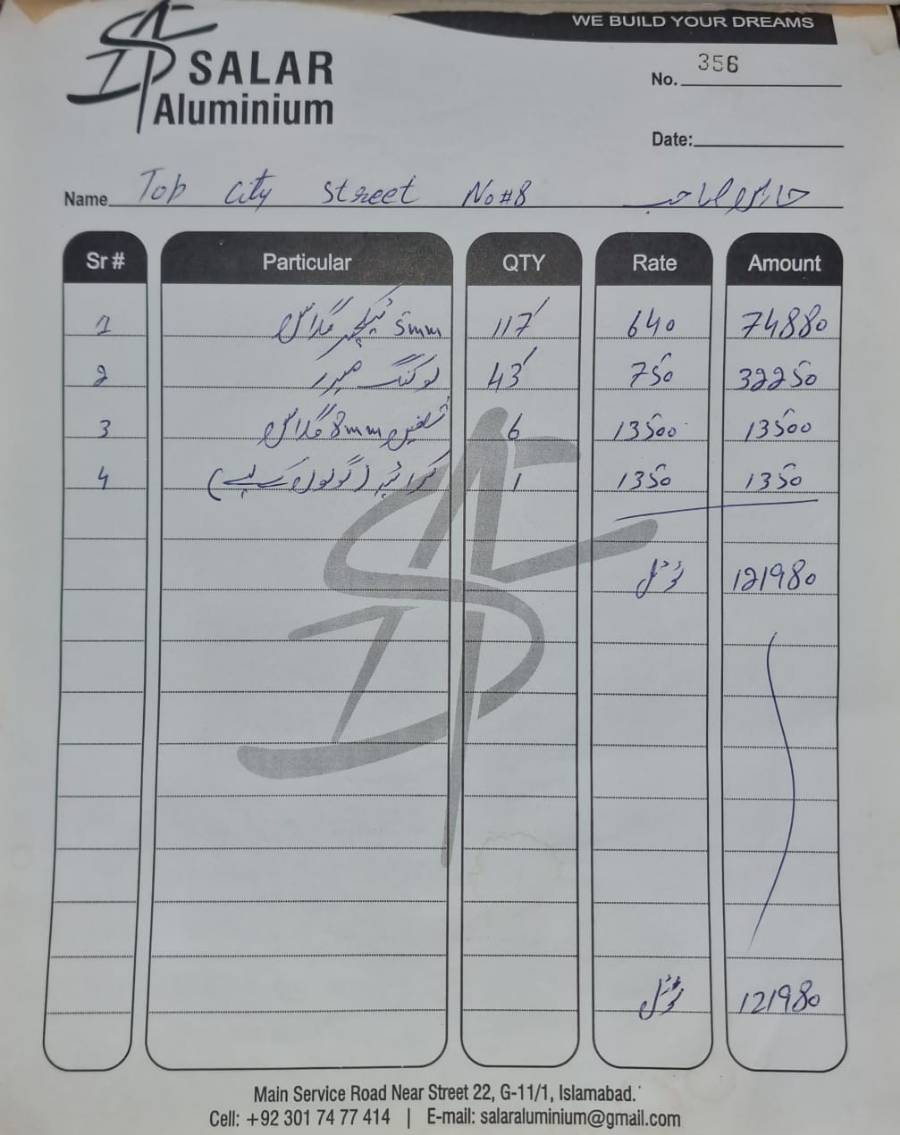 WE BUILD YOUR DREAMS
SALAR
Aluminium
No. 356
Date:
Name Top City Street No#8 صاحب
Sr # Particular QTY Rate Amount
1 5mm ٹیکچر گلاس 117' 640 74880
2 لوکنگ میرر 43' 750 32250
3 شلفیں 8mm گلاس 6 13500 13500
4 کرایہ (گولوں کے لیے) 1 1350 1350
ٹوٹل 121980
ٹوٹل 121980
Main Service Road Near Street 22, G-11/1, Islamabad.
Cell: +92 301 74 77 414 | E-mail: salaraluminium@gmail.com